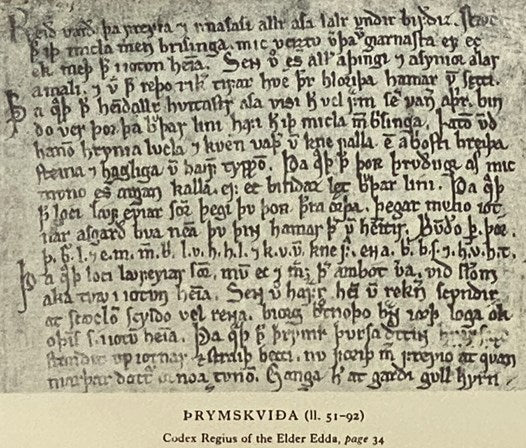 Reið varð þa freyia ⁊ fnasaþi allr asa salr vndir bifðiz. stꜹc
þ̄ iþ micla men brisinga. mic veiztv v̄þa v̄giarnasta ef ec
ek meþ þ̄ i iotvn heīa. Seɴ v̄ ęs allr aþingi ⁊ asynior allar
amali. ⁊ v̄ þ̄ reþo rik̄ tifar hve þr hlorriþa hamar v̄ sętti.
Þa q̇þ þ̄ heīdallr hvitastr asa vissi h̄ vel frā sē van̄ aþr. bin
do ver þor þa b'þar lini hafi h̄ iþ micla m̄ b'singa. Latō vnd
hanō hrynia lvcla ⁊ kven vaþ' v̄ kne falla. en̄ a briosti breiþa
steina ⁊ hagliga v̄ hꜹf̄ typpō. Þa q̇þ þ̄ þoʀ þrvðvgr ās mic
mvno ęs' argan kalla. ef ec bindaz lęt b'þar lini. Þa q̇þ
þ̄ loci lꜹfeyiar sōr þegi þv þoʀ þ'ra orþa. þegar mvno iot
nar asgarð bva nēa þv þiɴ hamar þ̄ v̄ heītir. Bvndo þ̄. þor.
þ. b̄. l. ⁊ e. m. m̄. b̄. l. v. h. h. l. ⁊ k. v. v̄. kne f. en a. b. b. s. ⁊ h. v. h. t.
Þa q̇þ loci lꜹfeyiar sōr. mvn ec ⁊ m; þ̄ ambot v̄a. við scōlom
aka tvꜹ i iotvn heīa. Seɴ v̄ hafr̄ heī v̄ rekn̄ scyndir
at scꜹclō scyldo vel reɴa. biorg brotnoþo iorþ loga ok
oþīs s. i iotū heīa. Þa q̇þ þ̄ þrymr þvrsa drottin
standit vp iotnar ⁊ straiþ becci. nv fǫriþ m̄ freyio at qvan
niarþar dott' or noa tvnō. Ganga h' at garði gvll hyrn̄
ÞRYMSKVIÐA (ll. 51–92)
Codex Regius of the Elder Edda, page 34